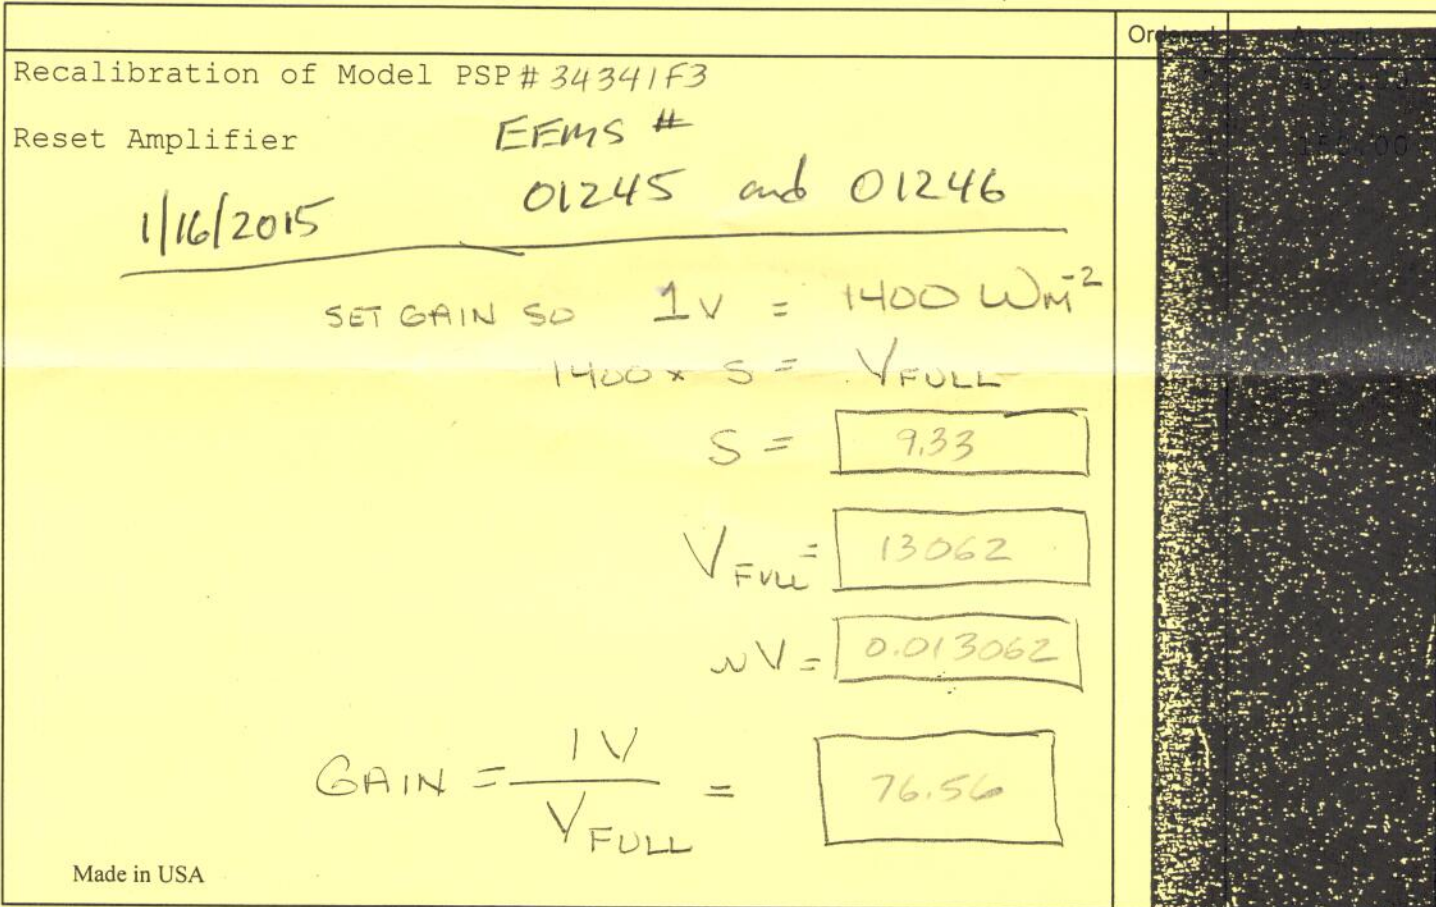 Ordered Amount
Recalibration of Model PSP # 34341F3
Reset Amplifier EEMS #
1/16/2015 01245 and 01246
SET GAIN SO 1V = 1400 Wm⁻²
1400 x S = V FULL
S = 9.33
V FULL = 13062
V = 0.013062
GAIN = 1V / V FULL = 76.56
Made in USA